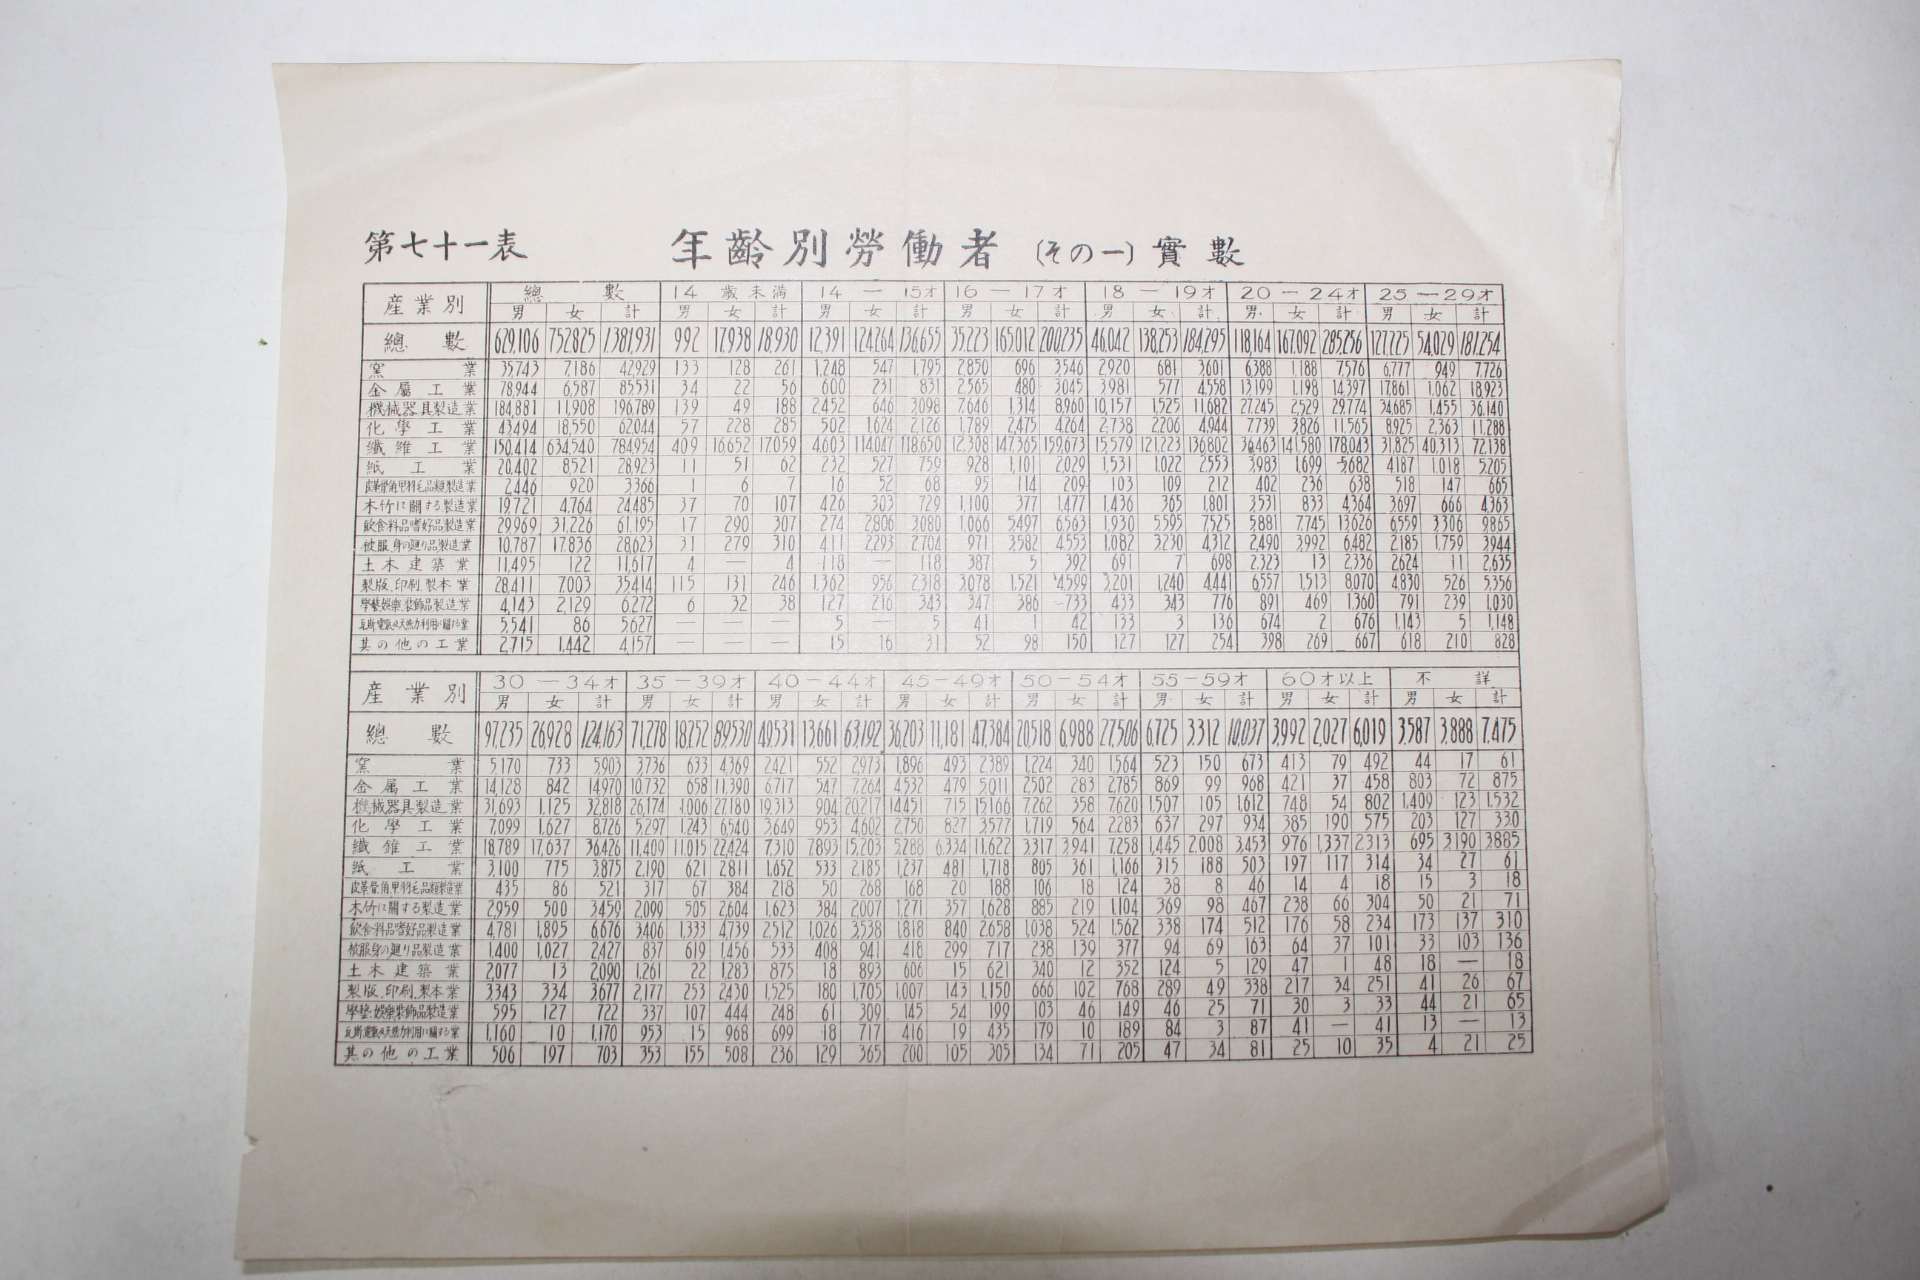 第七十一表 年齢別勞働者 (その一) 實數
産業別 總數 14歳未満 14―15才 16―17才 18―19才 20―24才 25―29才
男 女 計 男 女 計 男 女 計 男 女 計 男 女 計 男 女 計 男 女 計
總數 629,106 752,825 1,381,931 992 17,938 18,930 12,391 124,264 136,655 35,223 165,012 200,235 46,042 138,253 184,295 118,164 167,092 285,256 127,225 54,029 181,254
窯業 35,743 7,186 42,929 133 128 261 1,248 547 1,795 2,850 696 3,546 2,920 681 3,601 6,388 1,188 7,576 6,777 949 7,726
金屬工業 78,944 6,587 85,531 34 22 56 600 231 831 2,565 480 3,045 3,981 577 4,558 13,199 1,198 14,397 17,861 1,062 18,923
機械器具製造業 184,881 11,908 196,789 139 49 188 2,452 646 3,098 7,646 1,314 8,960 10,157 1,525 11,682 27,245 2,529 29,774 34,685 1,455 36,140
化學工業 43,494 18,550 62,044 57 228 285 502 1,624 2,126 1,789 2,475 4,264 2,738 2,206 4,944 7,739 3,826 11,565 8,925 2,363 11,288
纖維工業 150,414 634,540 784,954 409 16,652 17,059 4,603 114,047 118,650 12,308 147,365 159,673 15,579 121,223 136,802 36,463 141,580 178,043 31,825 40,313 72,138
紙工業 20,402 8,521 28,923 11 51 62 232 527 759 928 1,101 2,029 1,531 1,022 2,553 3,983 1,699 5,682 4,187 1,018 5,205
皮革骨角甲羽毛品類製造業 2,446 920 3,366 1 6 7 16 52 68 95 114 209 103 109 212 402 236 638 518 147 665
木竹に關する製造業 19,721 4,764 24,485 37 70 107 426 303 729 1,100 377 1,477 1,436 365 1,801 3,531 833 4,364 3,697 666 4,363
飲食料品嗜好品製造業 29,969 31,226 61,195 17 290 307 274 2,806 3,080 1,066 5,497 6,563 1,930 5,595 7,525 5,881 7,745 13,626 6,559 3,306 9,865
被服身の廻り品製造業 10,787 17,836 28,623 31 279 310 411 2,293 2,704 971 3,582 4,553 1,082 3,230 4,312 2,490 3,992 6,482 2,185 1,759 3,944
土木建築業 11,495 122 11,617 4 ― 4 118 ― 118 387 5 392 691 7 698 2,323 13 2,336 2,624 11 2,635
製版.印刷.製本業 28,411 7,003 35,414 115 131 246 1,362 956 2,318 3,078 1,521 4,599 3,201 1,240 4,441 6,557 1,513 8,070 4,830 526 5,356
學藝娯樂装飾品製造業 4,143 2,129 6,272 6 32 38 127 216 343 347 386 733 433 343 776 891 469 1,360 791 239 1,030
瓦斯電氣及天然力利用に關する業 5,541 86 5,627 ― ― ― 5 ― 5 41 1 42 133 3 136 674 2 676 1,143 5 1,148
其の他の工業 2,715 1,442 4,157 ― ― ― 15 16 31 52 98 150 127 127 254 398 269 667 618 210 828
産業別 30―34才 35―39才 40―44才 45―49才 50―54才 55―59才 60才以上 不詳
男 女 計 男 女 計 男 女 計 男 女 計 男 女 計 男 女 計 男 女 計 男 女 計
總數 97,235 26,928 124,163 71,278 18,252 89,530 49,531 13,661 63,192 36,203 11,181 47,384 20,518 6,988 27,506 6,725 3,312 10,037 3,992 2,027 6,019 3,587 3,888 7,475
窯業 5,170 733 5,903 3,736 633 4,369 2,421 552 2,973 1,896 493 2,389 1,224 340 1,564 523 150 673 413 79 492 44 17 61
金屬工業 14,128 842 14,970 10,732 658 11,390 6,717 547 7,264 4,532 479 5,011 2,502 283 2,785 869 99 968 421 37 458 803 72 875
機械器具製造業 31,693 1,125 32,818 26,174 1,006 27,180 19,313 904 20,217 14,451 715 15,166 7,262 358 7,620 1,507 105 1,612 748 54 802 1,409 123 1,532
化學工業 7,099 1,627 8,726 5,297 1,243 6,540 3,649 953 4,602 2,750 827 3,577 1,719 564 2,283 637 297 934 385 190 575 203 127 330
纖維工業 18,789 17,637 36,426 11,409 11,015 22,424 7,310 7,893 15,203 5,288 6,334 11,622 3,317 3,941 7,258 1,445 2,008 3,453 976 1,337 2,313 695 3,190 3,885
紙工業 3,100 775 3,875 2,190 621 2,811 1,652 533 2,185 1,237 481 1,718 805 361 1,166 315 188 503 197 117 314 34 27 61
皮革骨角甲羽毛品類製造業 435 86 521 317 67 384 218 50 268 168 20 188 106 18 124 38 8 46 14 4 18 15 3 18
木竹に關する製造業 2,959 500 3,459 2,099 505 2,604 1,623 384 2,007 1,271 357 1,628 885 219 1,104 369 98 467 238 66 304 50 21 71
飲食料品嗜好品製造業 4,781 1,895 6,676 3,406 1,333 4,739 2,512 1,026 3,538 1,818 840 2,658 1,038 524 1,562 338 174 512 176 58 234 173 137 310
被服身の廻り品製造業 1,400 1,027 2,427 837 619 1,456 533 408 941 418 299 717 238 139 377 94 69 163 64 37 101 33 103 136
土木建築業 2,077 13 2,090 1,261 22 1,283 875 18 893 606 15 621 340 12 352 124 5 129 47 1 48 18 ― 18
製版.印刷.製本業 3,343 334 3,677 2,177 253 2,430 1,525 180 1,705 1,007 143 1,150 666 102 768 289 49 338 217 34 251 41 26 67
學藝娯樂装飾品製造業 595 127 722 337 107 444 248 61 309 145 54 199 103 46 149 46 25 71 30 3 33 44 21 65
瓦斯電氣及天然力利用に關する業 1,160 10 1,170 953 15 968 699 18 717 416 19 435 179 10 189 84 3 87 41 ― 41 13 ― 13
其の他の工業 506 197 703 353 155 508 236 129 365 200 105 305 134 71 205 47 34 81 25 10 35 4 21 25